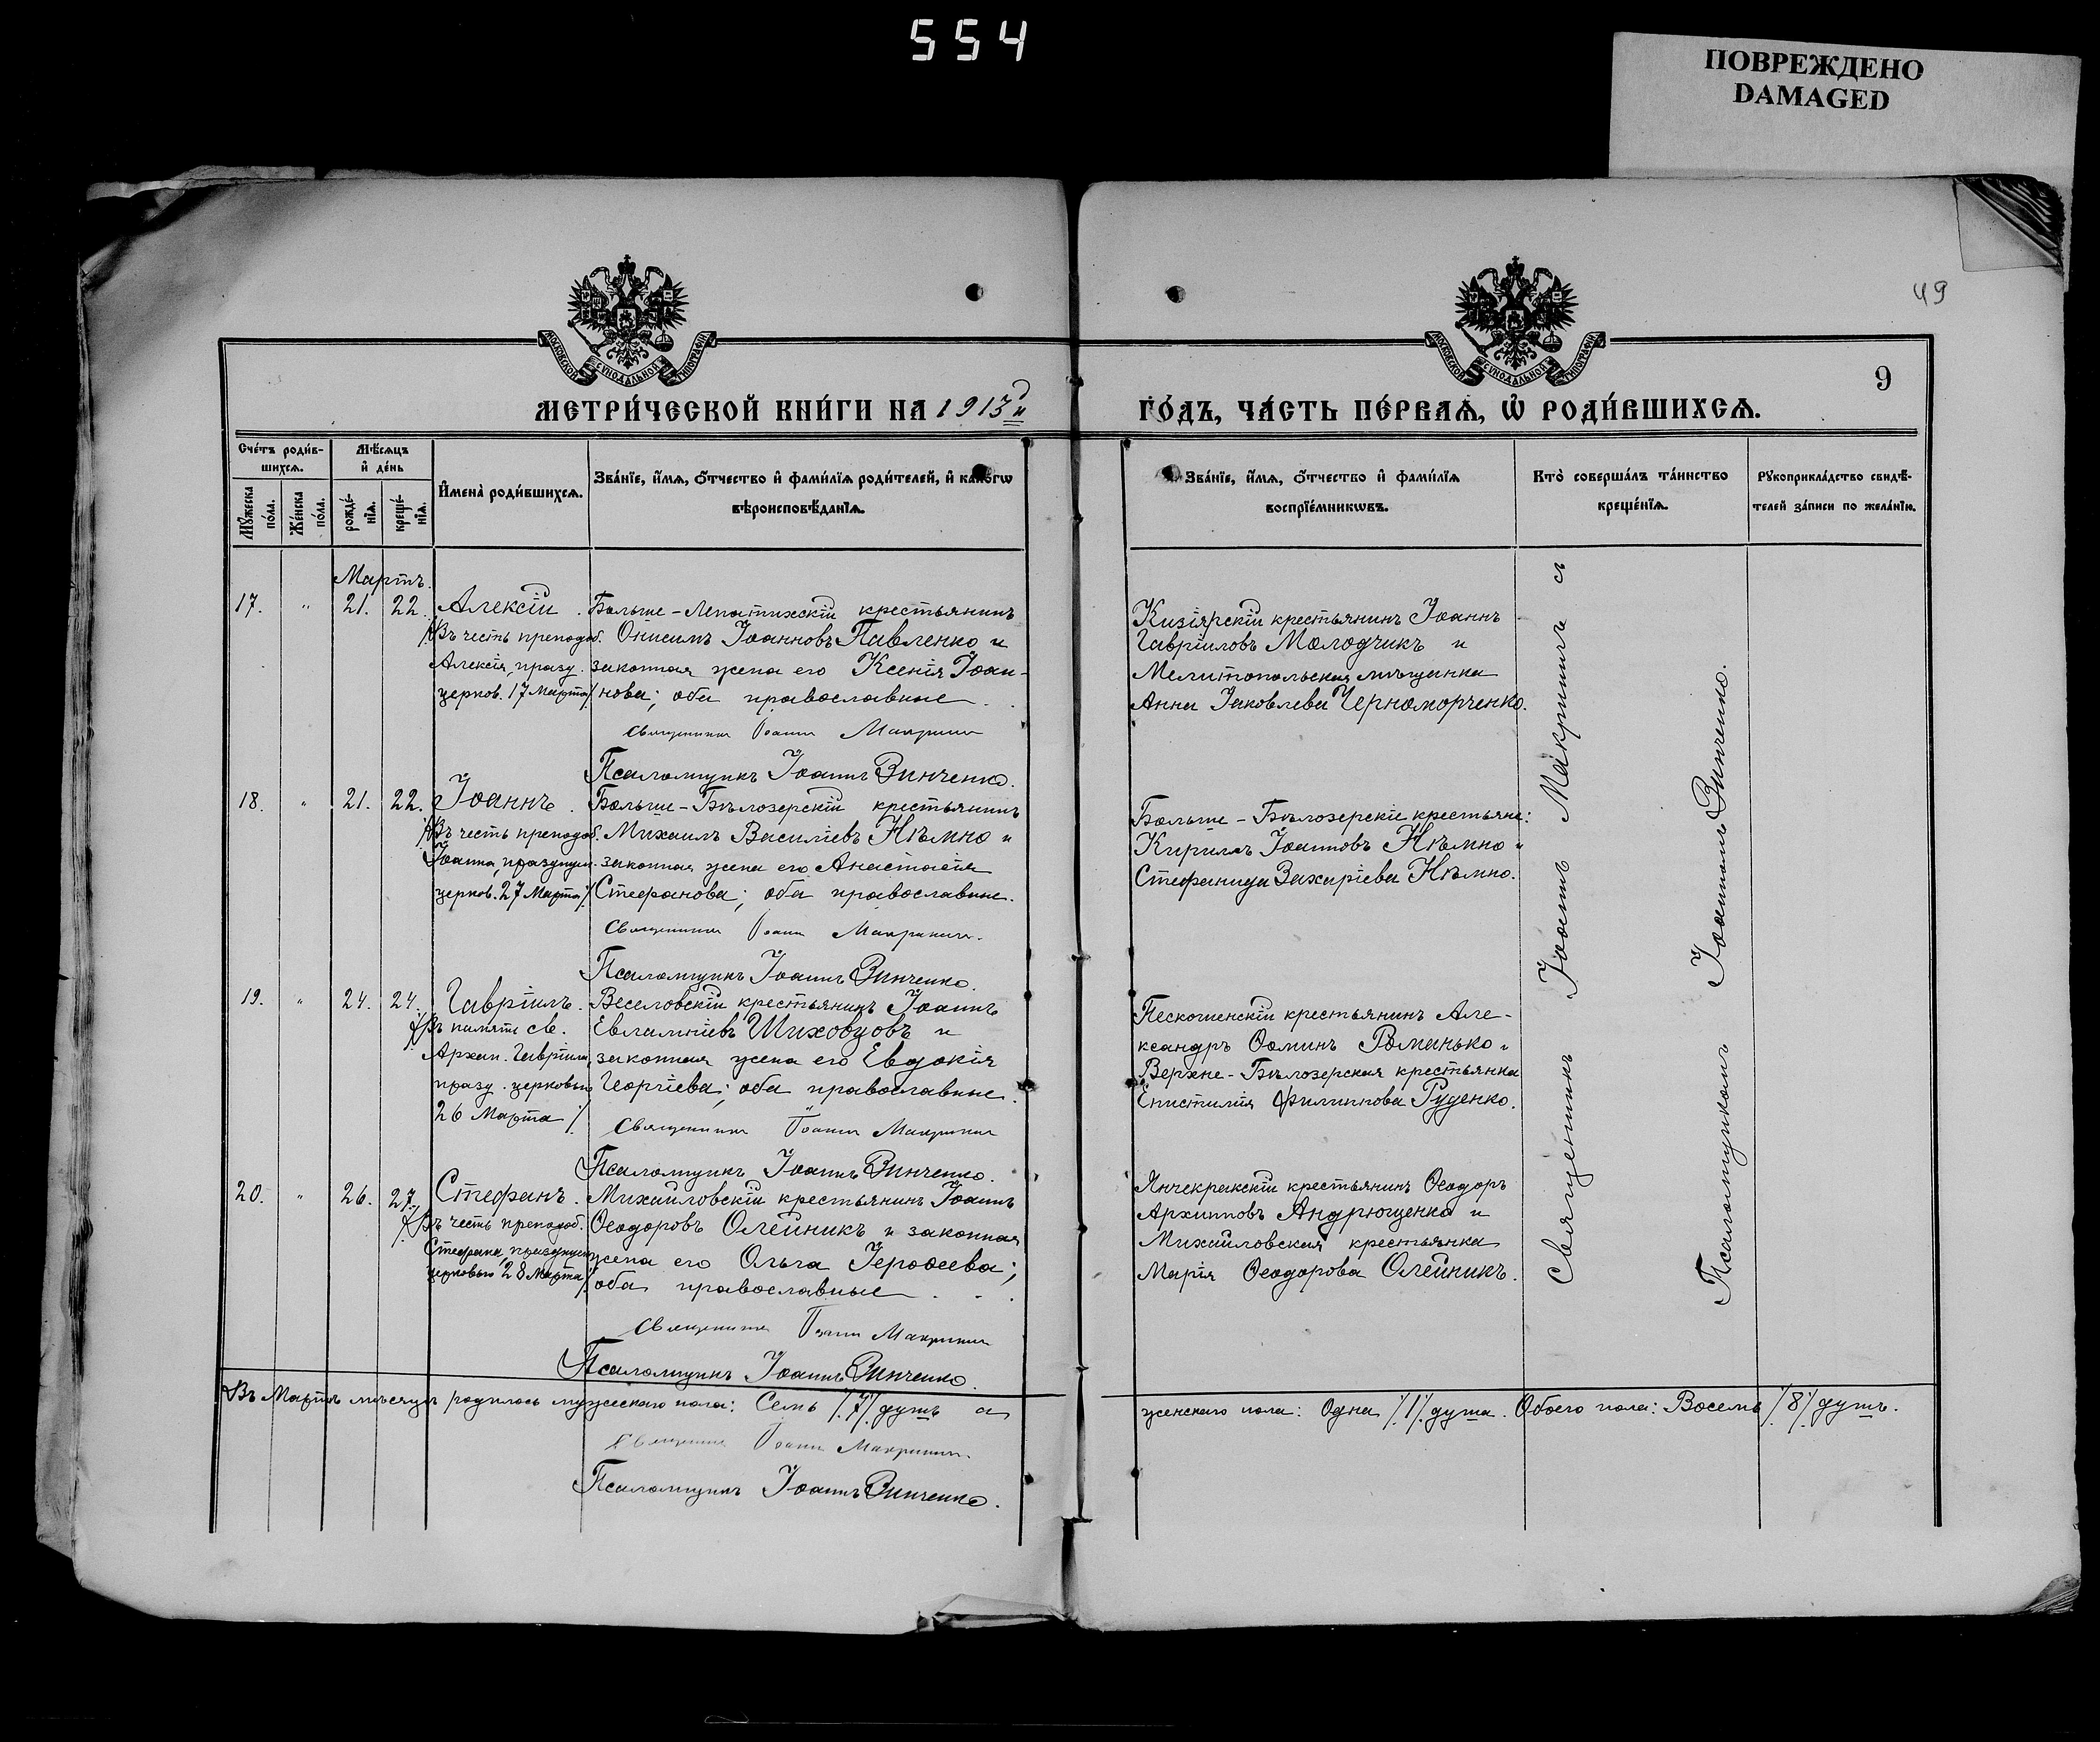 554
ПОВРЕЖДЕНО
DAMAGED
49
9
МОСКОВСКОЙ СѴНОДАЛЬНОЙ ТИПОГРАФІИ
МОСКОВСКОЙ СѴНОДАЛЬНОЙ ТИПОГРАФІИ
МЕТРИ́ЧЕСКОЙ КНИ́ГИ НА 1913й
ГО́ДЪ, ЧА́СТЬ ПЕ́РВАѦ, Ѡ҆ РОДИ́ВШИХСѦ.
Сче́тъ роди́в-
шихсѧ.
Мѣ́сѧцъ
и҆ де́нь
Мꙋ́жеска
по́ла.
Же́нска
по́ла.
рожде́-
нїѧ.
креще́-
нїѧ.
И҆мена̀ роди́вшихсѧ.
Зва́нїе, и҆́мѧ, ѻ҆́тчество и҆ фами́лїѧ роди́телей, и҆ како́гѡ
вѣроисповѣ́данїѧ.
Зва́нїе, и҆́мѧ, ѻ҆́тчество и҆ фами́лїѧ
воспрїе́мникѡвъ.
Кто̀ соверша́лъ та́инство
креще́нїѧ.
Рꙋкоприкла́дство свидѣ́-
телей за́писи по жела́нїю.
Мартъ.
17. " 21. 22. Алексій.
/Въ честь преподоб.
Алексія, празд.
церков. 17 Марта/
Больше-Лепатихскій крестьянинъ
Онисимъ Іоанновъ Павленко и
законная жена его Ксенія Іоан-
нова; оба православные.
Священникъ Іоаннъ Макринъ
Псаломщикъ Іоаннъ Зинченко.
Кизіярскій крестьянинъ Іоаннъ
Гавріиловъ Молодчикъ и
Мелитопольская мѣщанка
Анна Іаковлева Черноморченко.
18. " 21. 22. Іоаннъ.
/Въ честь преподоб.
Іоанна, празднуем.
церков. 27 Марта/
Больше-Бѣлозерскій крестьянинъ
Михаилъ Василіевъ Нѣмно и
законная жена его Анастасія
Стефанова; оба православные.
Священникъ Іоаннъ Макринъ.
Псаломщикъ Іоаннъ Зинченко.
Больше-Бѣлозерскіе крестьяне:
Кириллъ Іоанновъ Нѣмно и
Стефанида Захаріева Нѣмно.
19. " 24. 24. Гавріилъ.
/Въ память св.
Архан. Гавріила,
празд. церковью
26 Марта/
Веселовскій крестьянинъ Іоаннъ
Евлампіевъ Шиховцовъ и
законная жена его Евдокія
Георгіева; оба православные.
Священникъ Іоаннъ Макринъ
Псаломщикъ Іоаннъ Зинченко.
Пескошенскій крестьянинъ Але-
ксандръ Ѳоминъ Романько и
Верхне-Бѣлозерская крестьянка
Епистимія Филиппова Руденко.
20. " 26. 27. Стефанъ.
/Въ честь преподоб.
Стефана, празднуем.
церковью 28 Марта/
Михайловскій крестьянинъ Іоаннъ
Ѳеодоровъ Олейникъ и законная
жена его Ольга Іероѳеева;
оба православные.
Священникъ Іоаннъ Макринъ
Псаломщикъ Іоаннъ Зинченко.
Янчекракскій крестьянинъ Ѳеодоръ
Архипповъ Андрющенко и
Михайловская крестьянка
Марія Ѳеодорова Олейникъ.
Священникъ Іоаннъ Макринъ съ
Псаломщикомъ Іоанномъ Зинченко.
Въ Мартѣ мѣсяцѣ родилось мужескаго пола: Семь /7/ душъ а
женскаго пола: Одна /1/ душа. Обоего пола: Восемь /8/ душъ.
Священникъ Іоаннъ Макринъ.
Псаломщикъ Іоаннъ Зинченко.